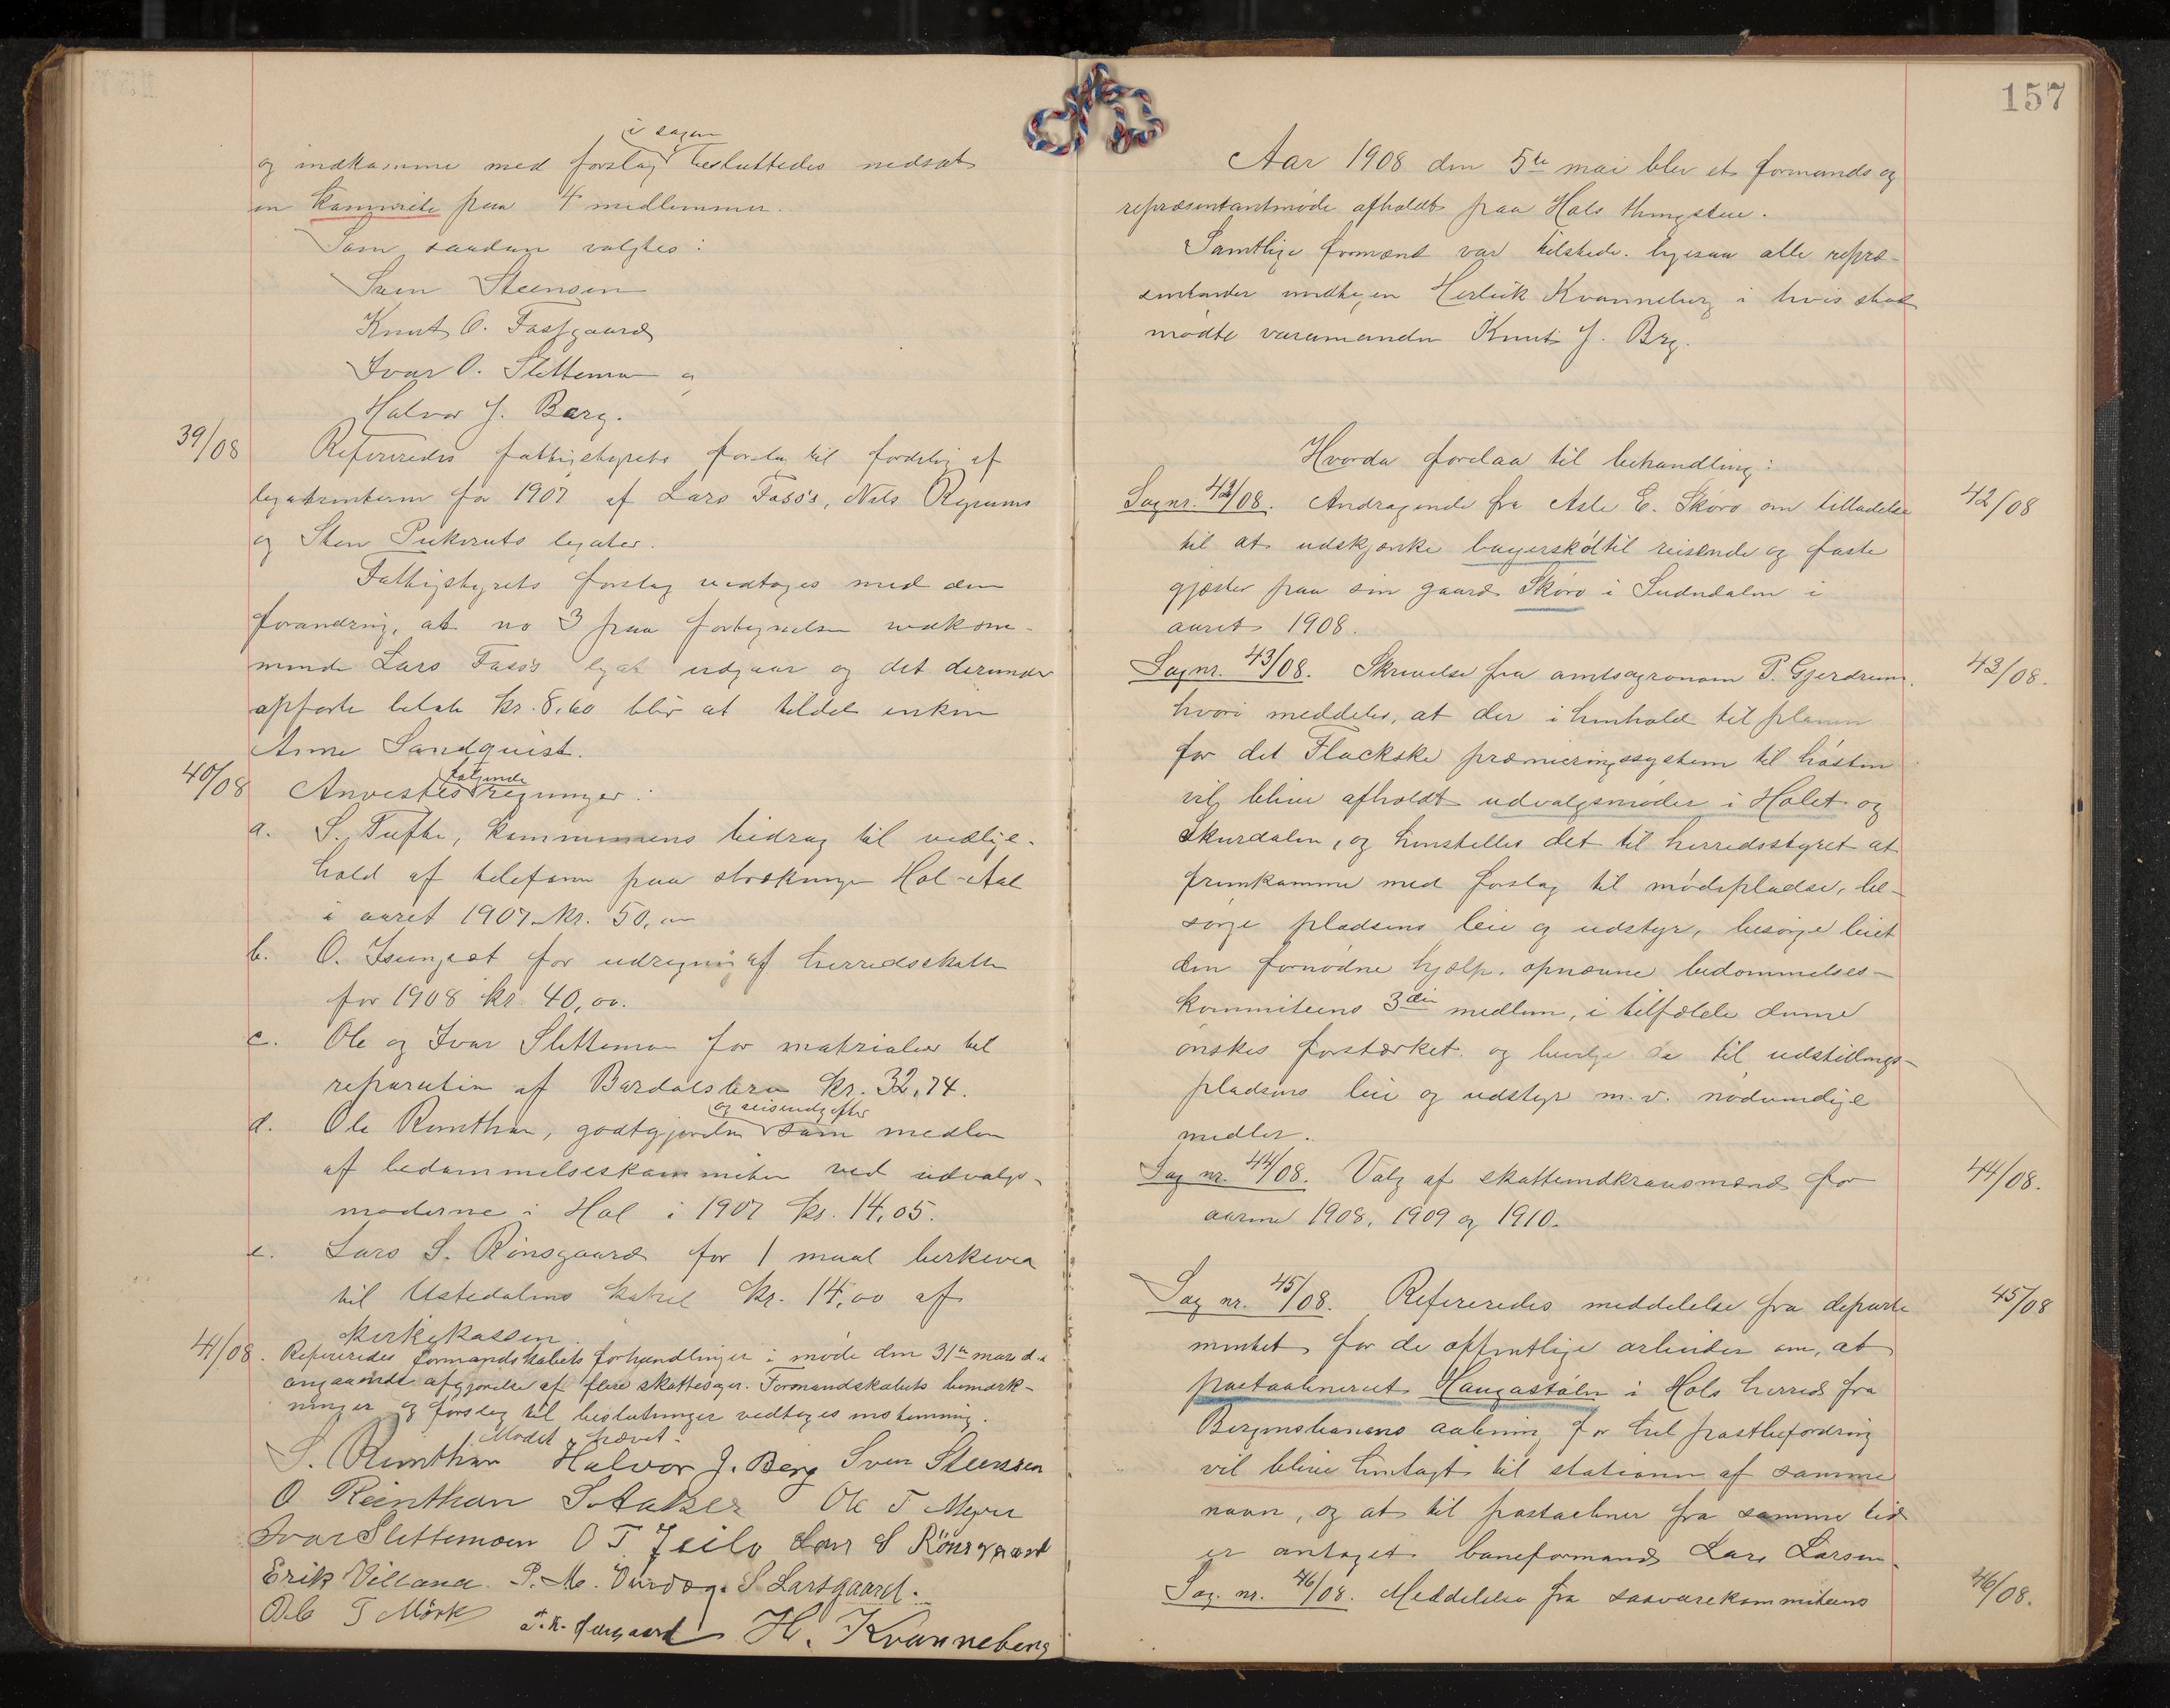 i sagen
og indkomme med forslag besluttedes nedsat
en kommite paa 4 medlemmer.
Som saadan valgtes:
Sven Steensen
Knut O. Fossgaard
Ivar O. Slettemoen og
Halvor J. Berg.
39/08 Refereredes fattigstyrets forslag til fordeling af
legatrenterne for 1907 af Lars Fosss, Nils
og Sten legater.
Fattigstyrets forslag vedtoges med den
forandring, at no 3 paa fortegnelsen vedkom-
mende Lars Fosss legat udgaar og det derunder
opførte beløb kr. 8,60 blir at tildele enken
Anne Sandquist.
følgende
40/08 Anvistes regninger:
a. S. Tufte, kommunens bidrag til vedlige-
hold af telefonen paa strækningen Hol-Aal
i aaret 1907. kr. 50,00
b. O. Isungset for udregning af herredsskatten
for 1908 kr. 40,00.
c. Ole og Ivar Slettemoen for matrialer til
reparation af Bardølsbro kr. 32,74.
og reiseudgifter
d. Ole Reinthon, godtgjørelse som medlem
af bedømmelseskommiteen ved udvalgs-
møderne i Hol i 1907 kr. 14,05.
e. Lars S. Rønsgaard for 1 maal birkeved
til Ustedalens kapel kr. 14,00 af
kirkekassen.
41/08. Refereredes formandskabets forhandlinger i møde den 31te mars d.a
angaaende afgjørelse af flere skattesager. Formandskabets bemærk-
ninger og forslag til beslutninger vedtoges enstemmig.
Mødet hævet.
S. Reinthon Halvor J. Berg Sven Steenssen
O Reinthon S. Aaker Ole T Myro
Ivar Slettemoen O T Jeilo Lars S Rönsgaard
Erik Villand. P. M. S Larsgaard.
Ole T Mörk H. Kvanneberg
157
Aar 1908 den 5te mai blev et formands og
repræsentantmøde afholdt paa Hols thingstue.
Samtlige formænd var tilstede. ligesaa alle repræ-
sentanter undtagen Herleik Kvanneberg i hvis sted
mødte varamanden Knut J. Brg.
Hvorda forelaa til behandling:
Sag nr. 42/08. Andragende fra Asle E. Skøro om tilladelse 42/08
til at udskjænke bayerskøl til reisende og faste
gjæster paa sin gaard Skøro i Sudndalen i
aaret 1908.
Sag nr. 43/08. Skrivelse fra amtsagronom P. Gjerdrum. 43/08.
hvori meddeles, at der i henhold til planen
for det Flackske præmieringssystem til høsten
vil blive afholdt udvalgsmøder i Holet og
Skurdalen, og henstilles det til herredsstyret at
fremkomme med forslag til mødepladse, be-
sørge pladsens leie og udstyr, besørge leiet
den fornødne hjælp. opnævne bedømmelses-
kommiteens 3die medlem, i tilfælde denne
ønskes forstærket. og bevilge de til udstillings-
pladsens leie og udstyr m.v. nødvendige
midler.
Sag nr. 44/08. Valg af skatteindkrævsmænd for 44/08.
aarene 1908, 1909 og 1910.
Sag nr. 45/08. Refereredes meddelelse fra departe 45/08
mentet for de offentlige arbeider om, at
postaabneriet Haugastølen i Hols herred fra
Bergensbanens aabning for hel postbefordring
vil blive henlagt til stationen af samme
navn, og at til postaabner fra samme tid
er antaget baneformand Lars Larsen.
Sag. nr. 46/08. Meddelelse fra kommiteens 46/08.